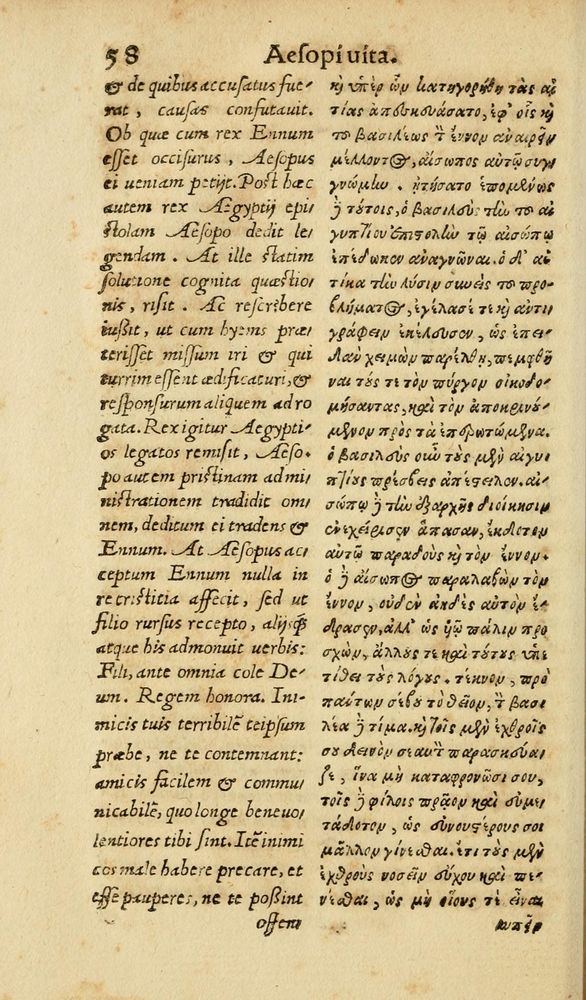 58 Aesopi vita.
& de quibus accusatus fue-
rat, causas confutauit.
Ob quæ cum rex Ennum
esset occisurus, Aesopus
ei ueniam petijt. Post hæc
autem rex Ægyptij epi
stolam Aesopo dedit le
gendam. At ille statim
solutione cognita quæstio
nis, risit. Ac rescribere
iußit, ut cum hyems præ
terisset missum iri & qui
turrim essent ædificaturi, &
responsurum aliquem ad ro
gata. Rex igitur Aegypti-
os legatos remisit, Aeso-
po autem pristinam admi
nistrationem tradidit om
nem, deditum ei tradens &
Ennum. At Aesopus ac
ceptum Ennum nulla in
re tristitia affecit, sed ut
filio rursus recepto, alijsq́;
atque his admonuit uerbis:
Fili, ante omnia cole De-
um. Regem honora. Ini-
micis tuis terribilē teipsum
præbe, ne te contemnant:
amicis facilem & commu
nicabilē, quo longe beneuo
lentiores tibi sint. Itē inimi
cos male habere precare, et
esse pauperes, ne te poßint
offen
καὶ ὑπὲρ ὧν κατηγορήθη τὰς αἰ
τίας ἀπεσκευάσατο, ἐφ' οἷς καὶ
τοῦ βασιλέως τὸν ἔννον ἀναιρεῖν
μέλλοντος, αἴσωπος αὐτῷ συγ
γνώμην ᾐτήσατο ἑπομένως
δὲ τούτοις, ὁ βασιλεὺς τὴν τοῦ αἰ
γυπτίου ἐπιστολὴν τῷ αἰσώπῳ
ἐπέδωκεν ἀναγνῶναι. ὁ δ' αὐ
τίκα τὴν λύσιν συνεὶς τοῦ προ
βλήματος, ἐγέλασέ τε καὶ ἀντι
γράφειν ἐκέλευσεν, ὡς ἐπει
δὰν χειμὼν παρέλθῃ, πεμφθῆ
ναι τούς τε τὸν πύργον οἰκοδο
μήσαντας, καὶ τὸν ἀποκρινού
μενον πρὸς τὰ ἐρωτώμενα.
ὁ βασιλεὺς οὖν τοὺς μὲν αἰγυ
πτίους πρέσβεις ἀπέστειλεν. αἰ
σώπῳ δὲ τὴν ἐξαρχῆς διοίκησιν
ἐνεχείρισεν ἅπασαν, ἔκδοτον
αὐτῷ παραδοὺς καὶ τὸν ἔννον.
ὁ δὲ αἴσωπος παραλαβὼν τὸν
ἔννον, οὐδὲν ἀηδὲς αὐτὸν ἔ
δρασεν, ἀλλ' ὡς υἱῷ πάλιν προ
σχὼν, ἄλλους τε καὶ τούτους ὑπε
τίθει τοὺς λόγους. τέκνον, πρὸ
πάντων σέβου τὸ θεῖον, τὸν βασι
λέα δὲ τίμα. καὶ τοῖς μὲν ἐχθροῖς
σου δεινὸν σεαυτὸν παρασκεύα
ζε, ἵνα μὴ καταφρονῶσί σου,
τοῖς δὲ φίλοις πρᾶον καὶ εὐμε
τάδοτον, ὡς εὐνουστέρους σοι
μᾶλλον γίνεσθαι. ἔτι τοὺς μὲν
ἐχθροὺς νοσεῖν εὔχου καὶ πέ
νεσθαι, ὡς μὴ οἵους τε εἶναι
λυπεῖν